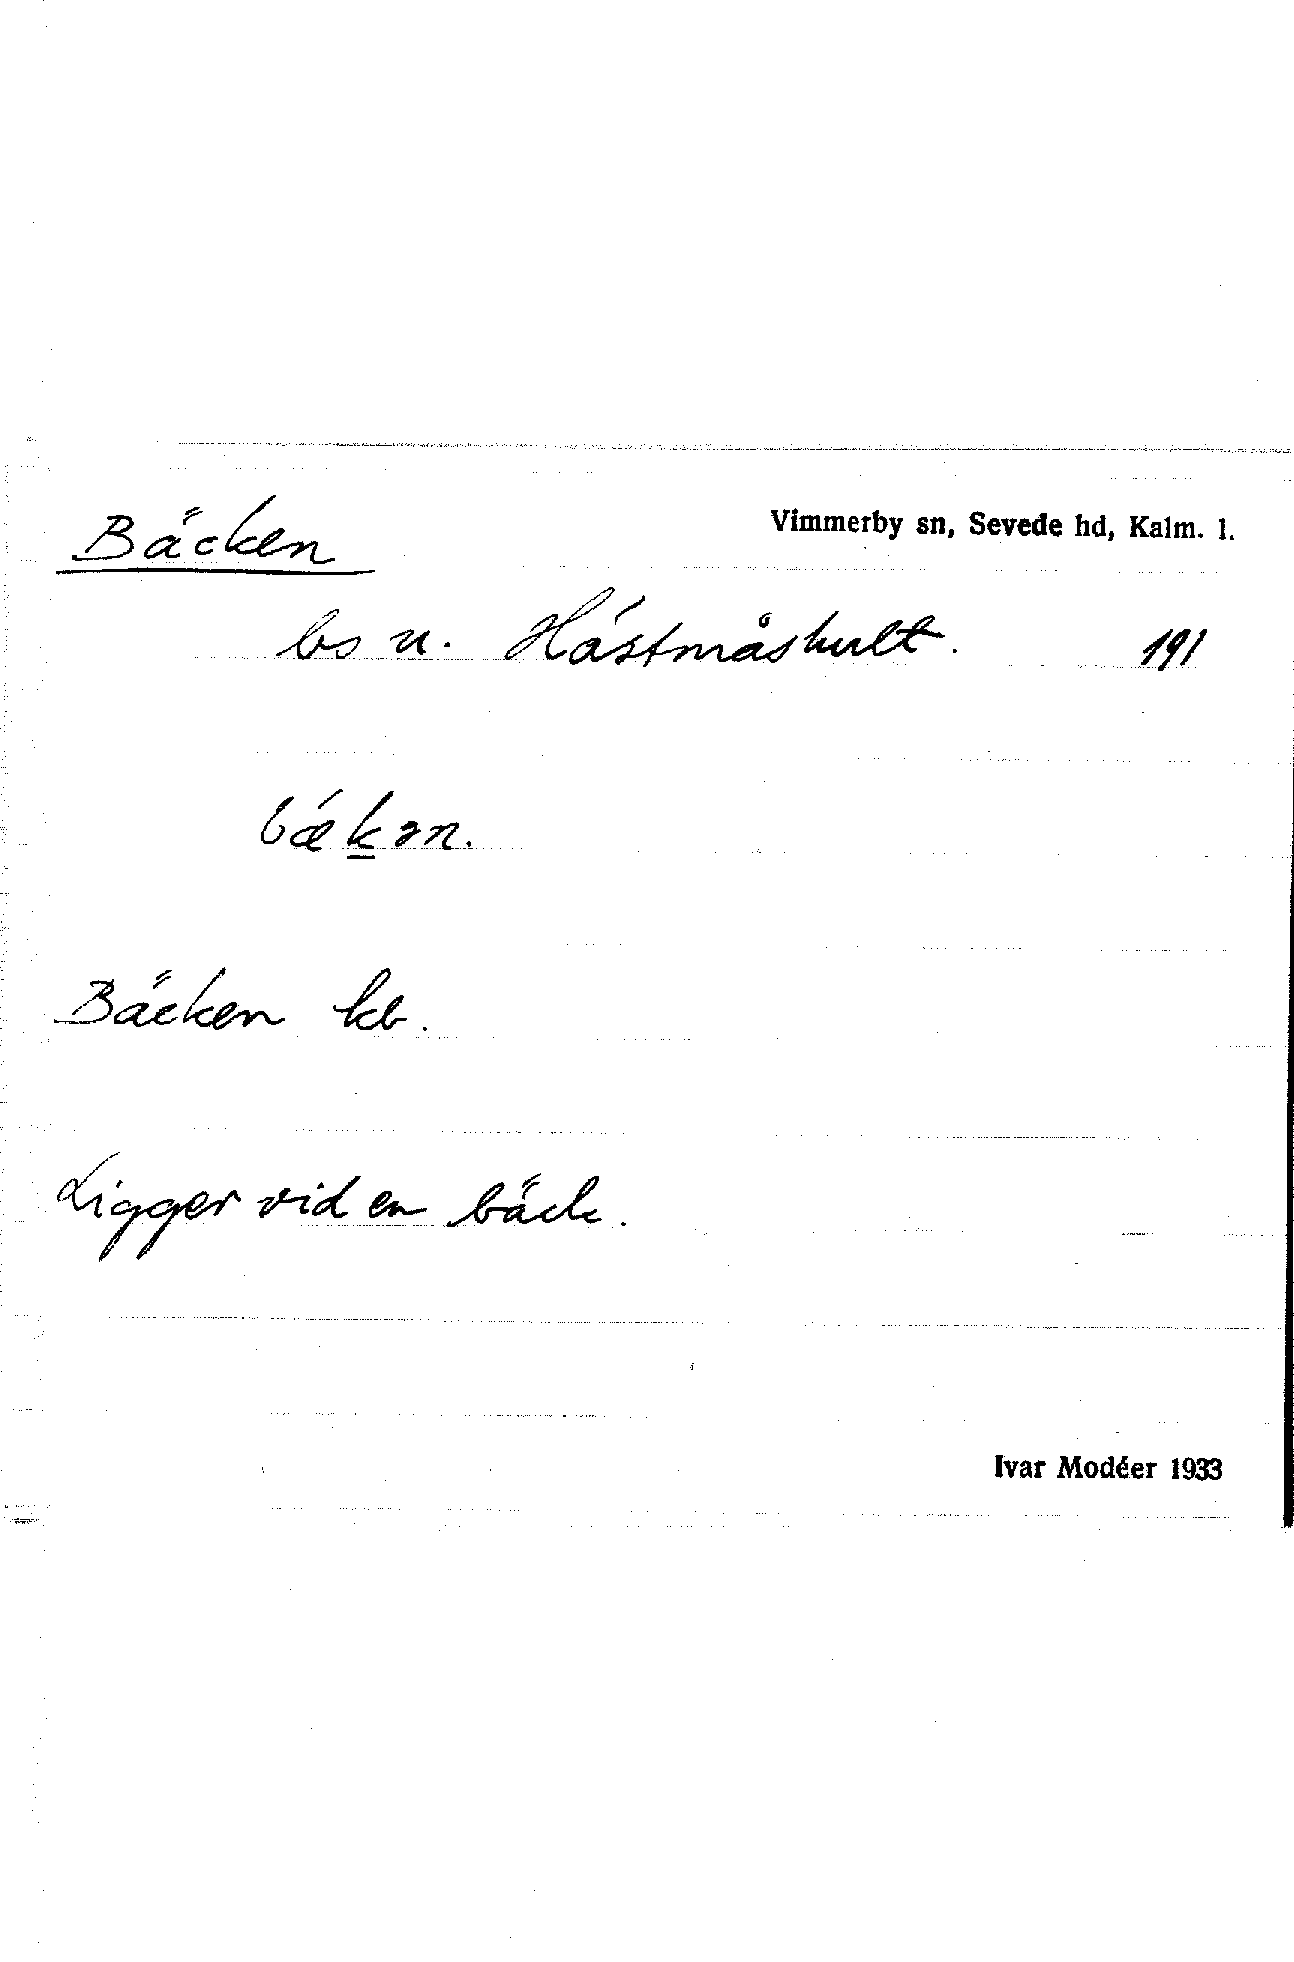 Bäcken
Vimmerby sn, Sevede hd, Kalm. l.
bs u. Hästmåshult. 191
bǽk̲ən.
Bäcken kb.
Ligger vid en bäck.
Ivar Modéer 1933